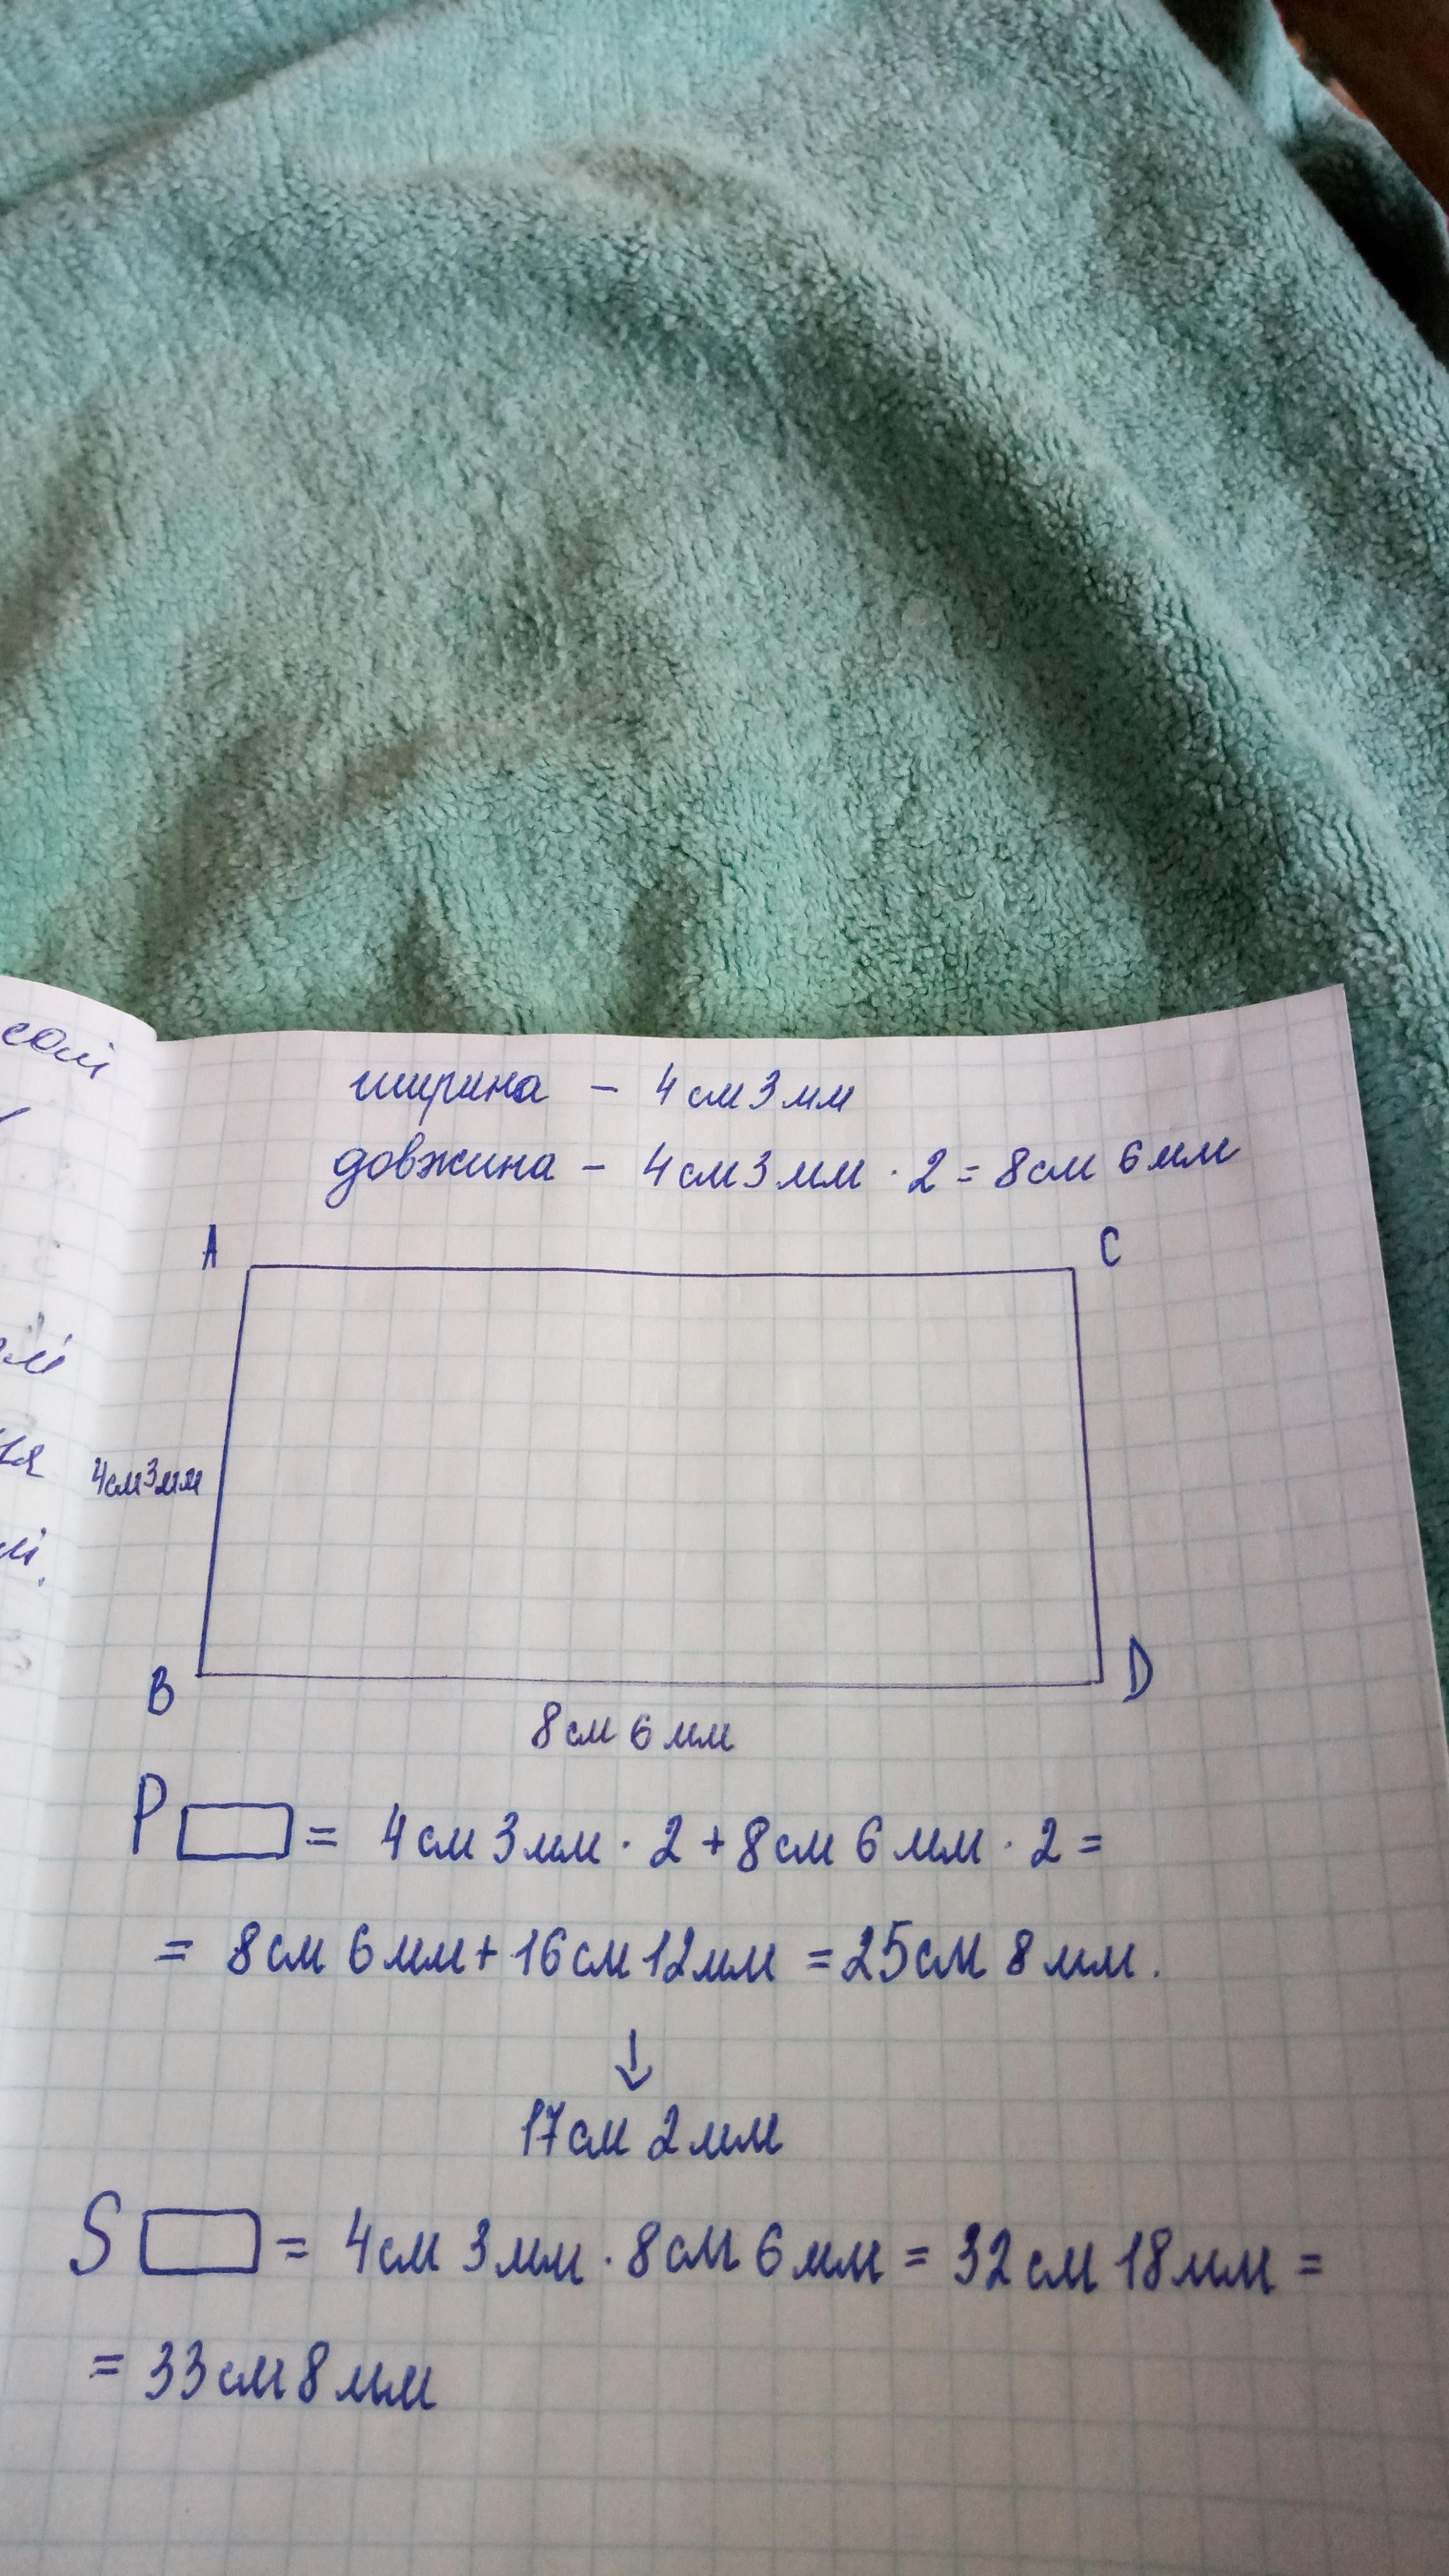 солі
ширина - 4 см 3 мм
довжина - 4 см 3 мм · 2 = 8 см 6 мм
A C
4 см 3 мм
B D
8 см 6 мм
P = 4 см 3 мм · 2 + 8 см 6 мм · 2 =
= 8 см 6 мм + 16 см 12 мм = 25 см 8 мм.
↓
17 см 2 мм
S = 4 см 3 мм · 8 см 6 мм = 32 см 18 мм =
= 33 см 8 мм